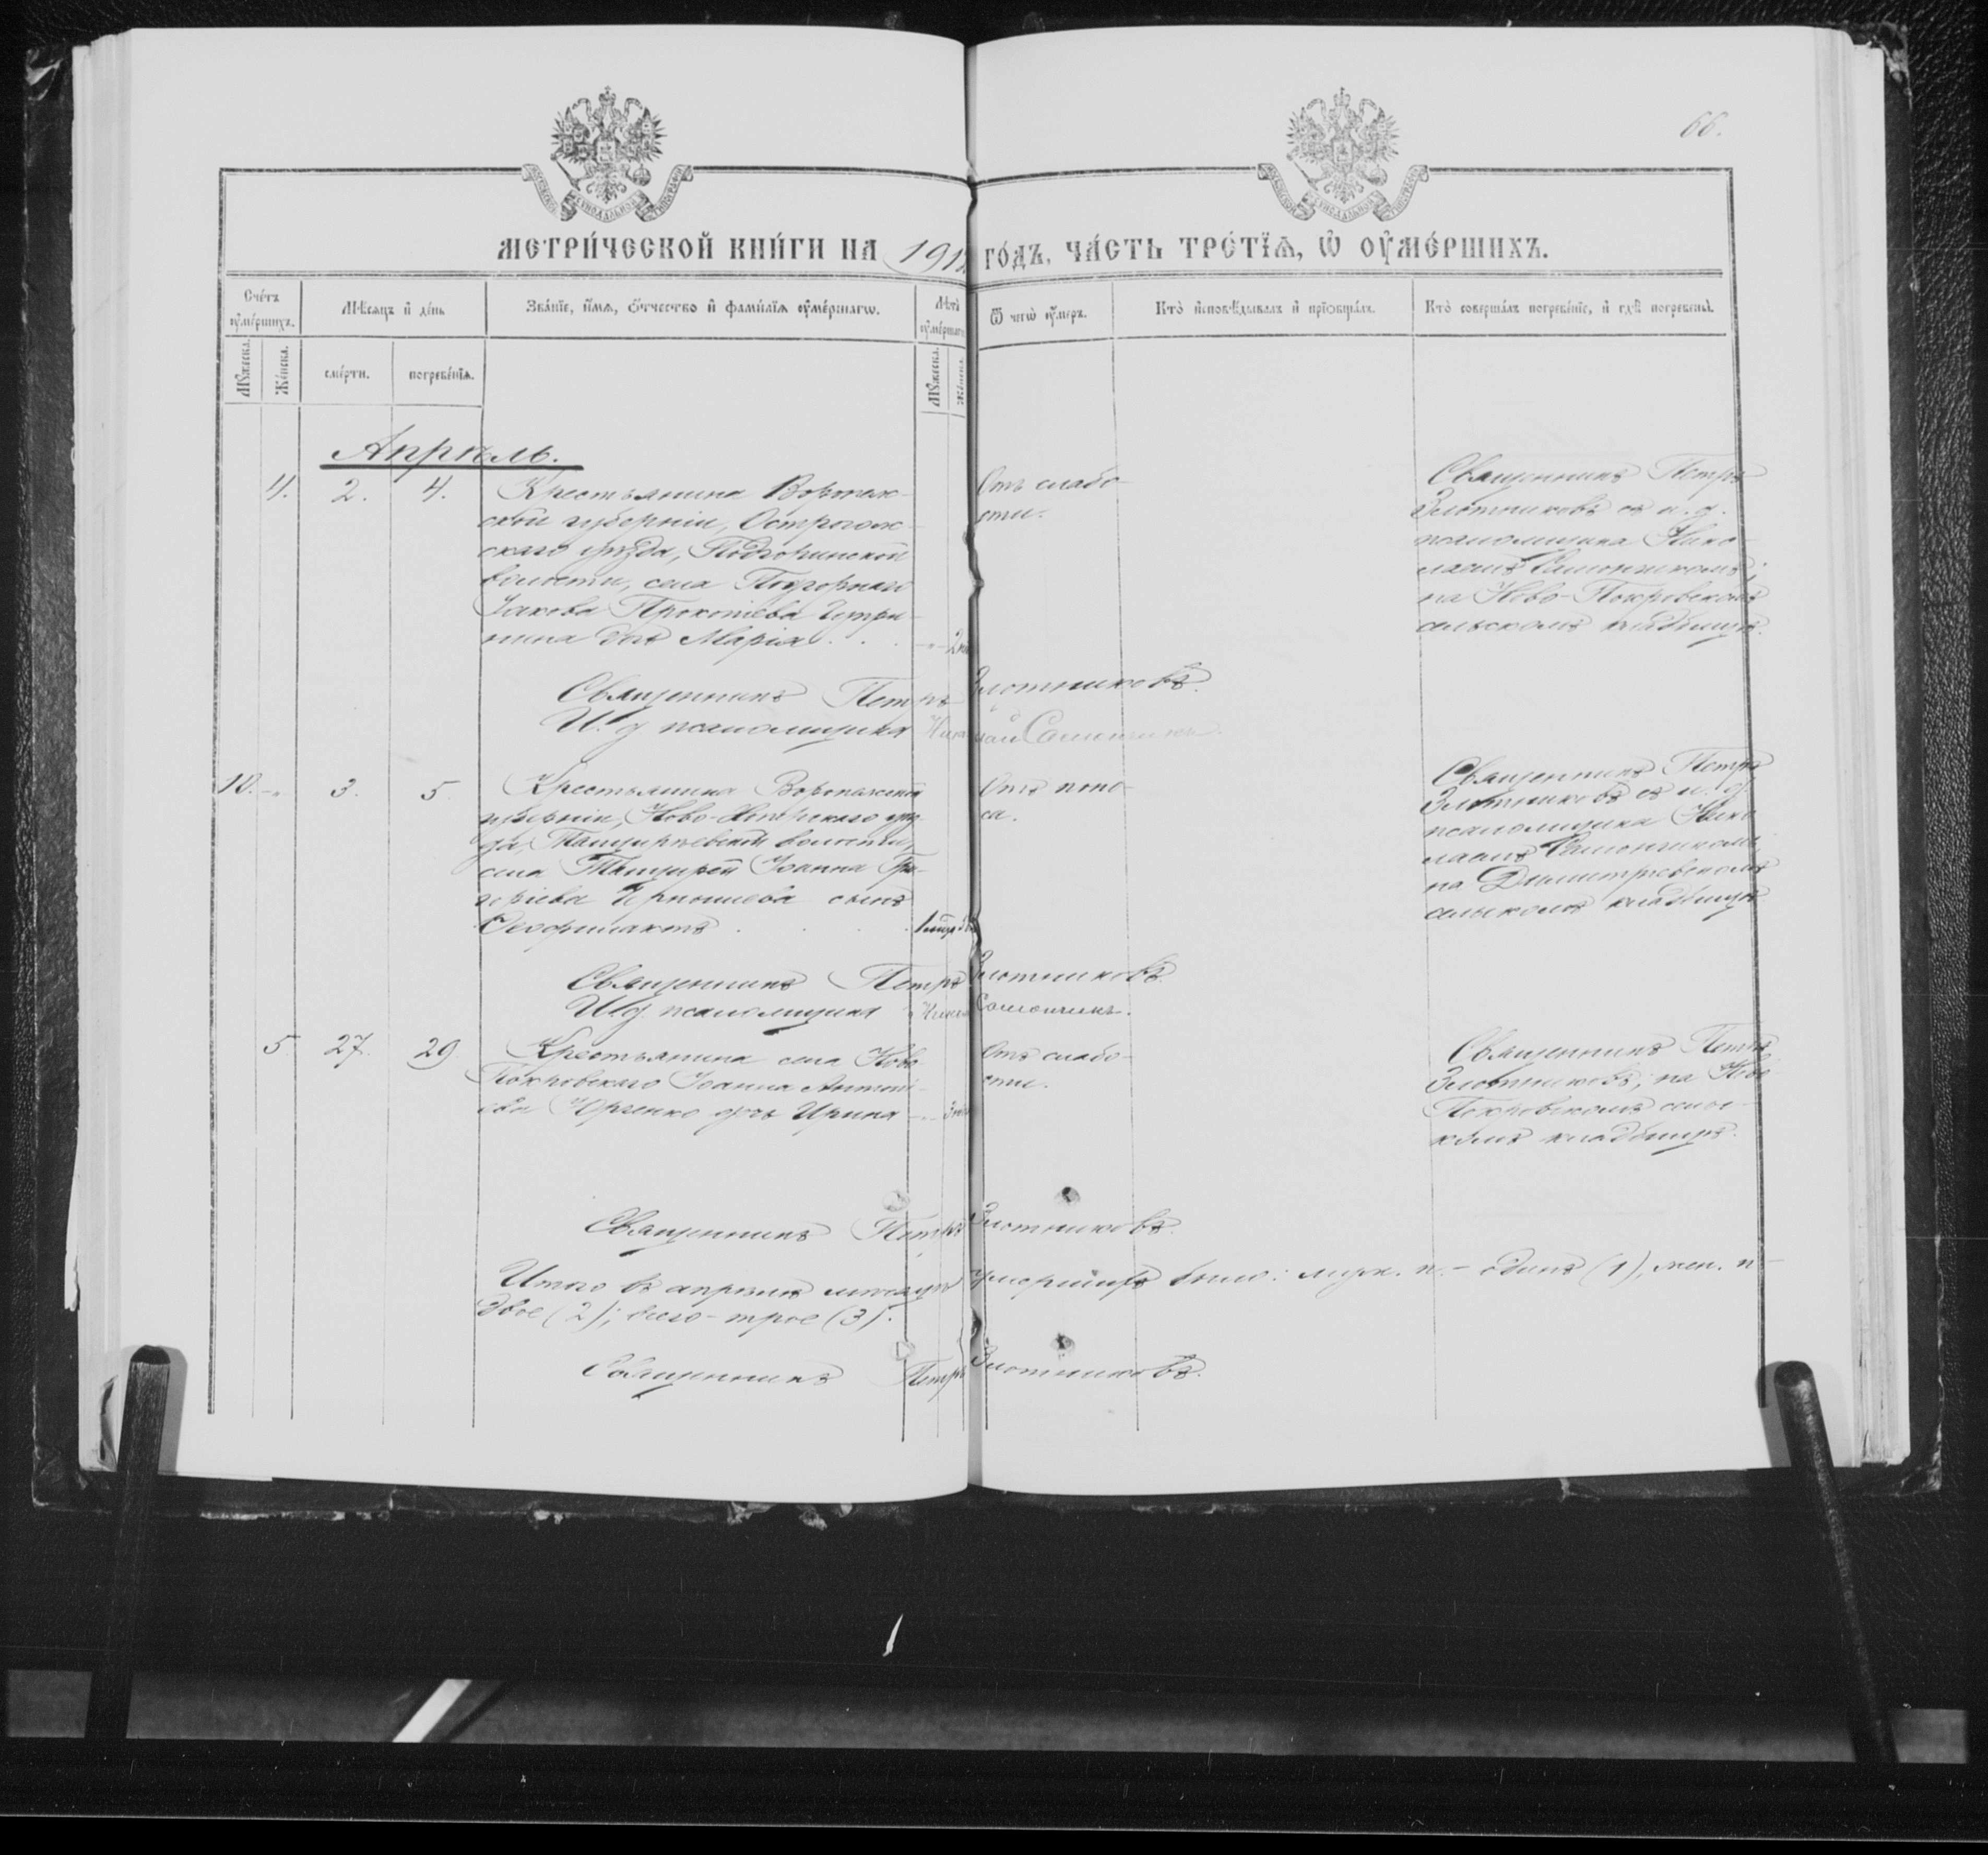 66.
МЕТРИ́ЧЕСКОЙ КНИ́ГИ НА 1912 ГО́ДЪ, ЧА́СТЬ ТРЕ́ТЇѦ, Ѡ҆ ОУ҆МЕ́РШИХЪ.
Сче́тъ оу҆ме́ршихъ.
Мѣ́сѧцъ и҆ де́нь
Зва́нїе, и҆́мѧ, ѻ҆́тчество и҆ фами́лїѧ оу҆ме́ршагѡ.
Лѣ́та оу҆ме́ршагѡ
Ѿ чегѡ̀ оу҆́меръ.
Кто̀ и҆сповѣ́дывалъ и҆ прїѡбща́лъ.
Кто̀ соверша́лъ погребе́нїе, и҆ гдѣ̀ погребены̀.
Мꙋ́жеска.
Же́нска.
сме́рти.
погребе́нїѧ.
Мꙋ́жеска.
Же́нска.
Апрѣль.
4. 2. 4.
Крестьянина Воронеж-
ской губерніи, Острогож-
скаго уѣзда, Подгоринской
волости, села Подгорнаго
Іакова Прокопіева
дочь Марія . . .
Отъ слабо-
сти.
Священникъ Петръ
Злотниковъ съ и. д.
псаломщика Нико-
лаемъ
на Ново-Покровскомъ
сельскомъ кладбищѣ.
Священникъ Петръ Злотниковъ.
И. д. псаломщика Николай
10. 3. 5.
Крестьянина Воронежской
губерніи, Ново-Хоперскаго уѣз-
да, волости,
села Іоанна Гри-
горіева сынъ
Ѳеофилактъ . . .
Отъ поно-
са.
Священникъ Петръ
Злотниковъ съ и. д.
псаломщика Нико-
лаемъ
на Димитріевскомъ
сельскомъ кладбищѣ
Священникъ Петръ Злотниковъ.
И. д. псаломщика
5. 27. 29
Крестьянина села Ново-
Покровскаго Іоанна Антоні-
ева Юрченко дочь Ирина
Отъ слабо-
сти.
Священникъ Петръ
Злотниковъ; на Ново-
Покровскомъ сельс-
комъ кладбищѣ.
Священникъ Петръ Злотниковъ.
Итого въ апрѣлѣ мѣсяцѣ умершихъ было: муж. п. - одинъ (1), жен. п -
двое (2); всего - трое (3).
Священникъ Петръ Злотниковъ.